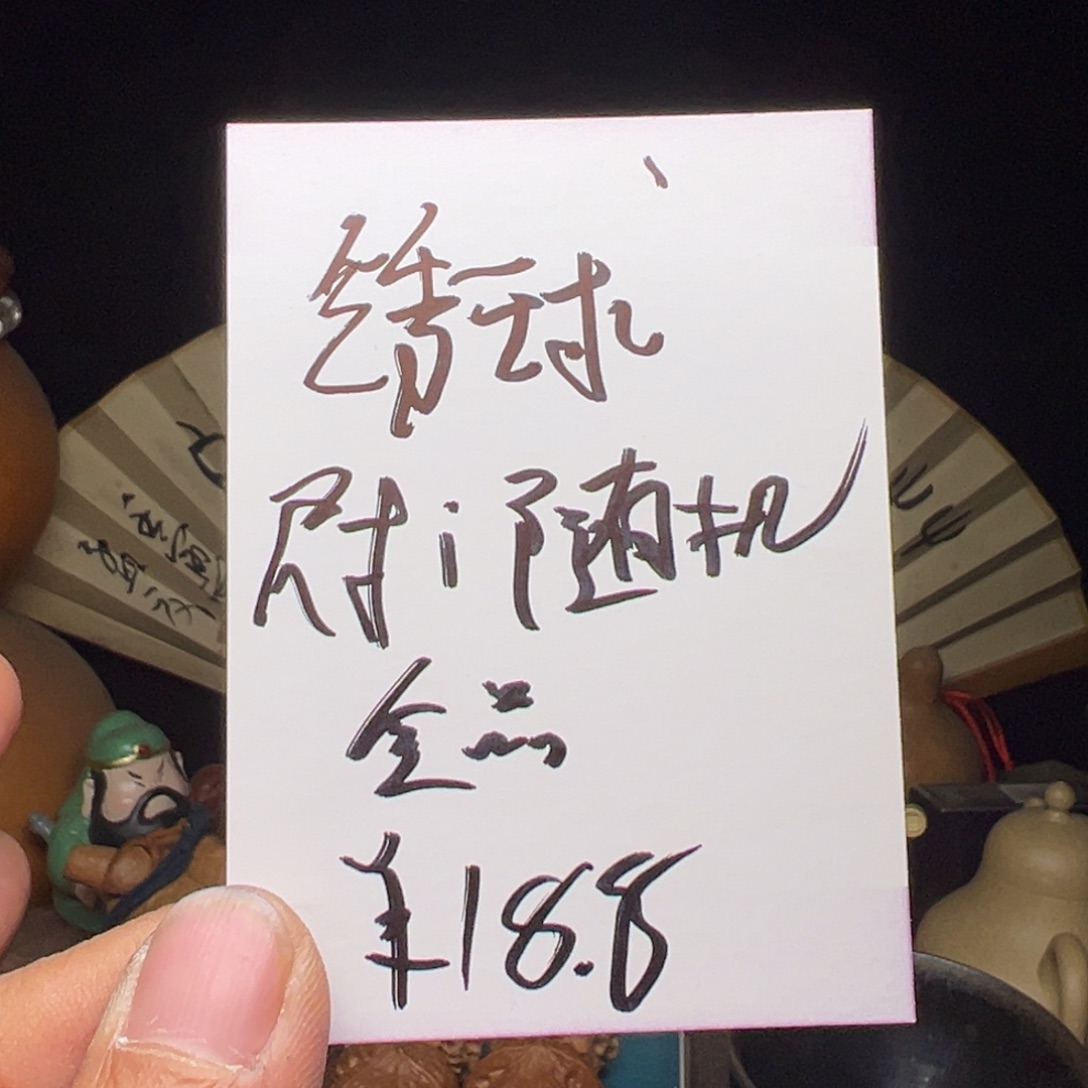 绣球
尺寸:随机
全品
¥18.8